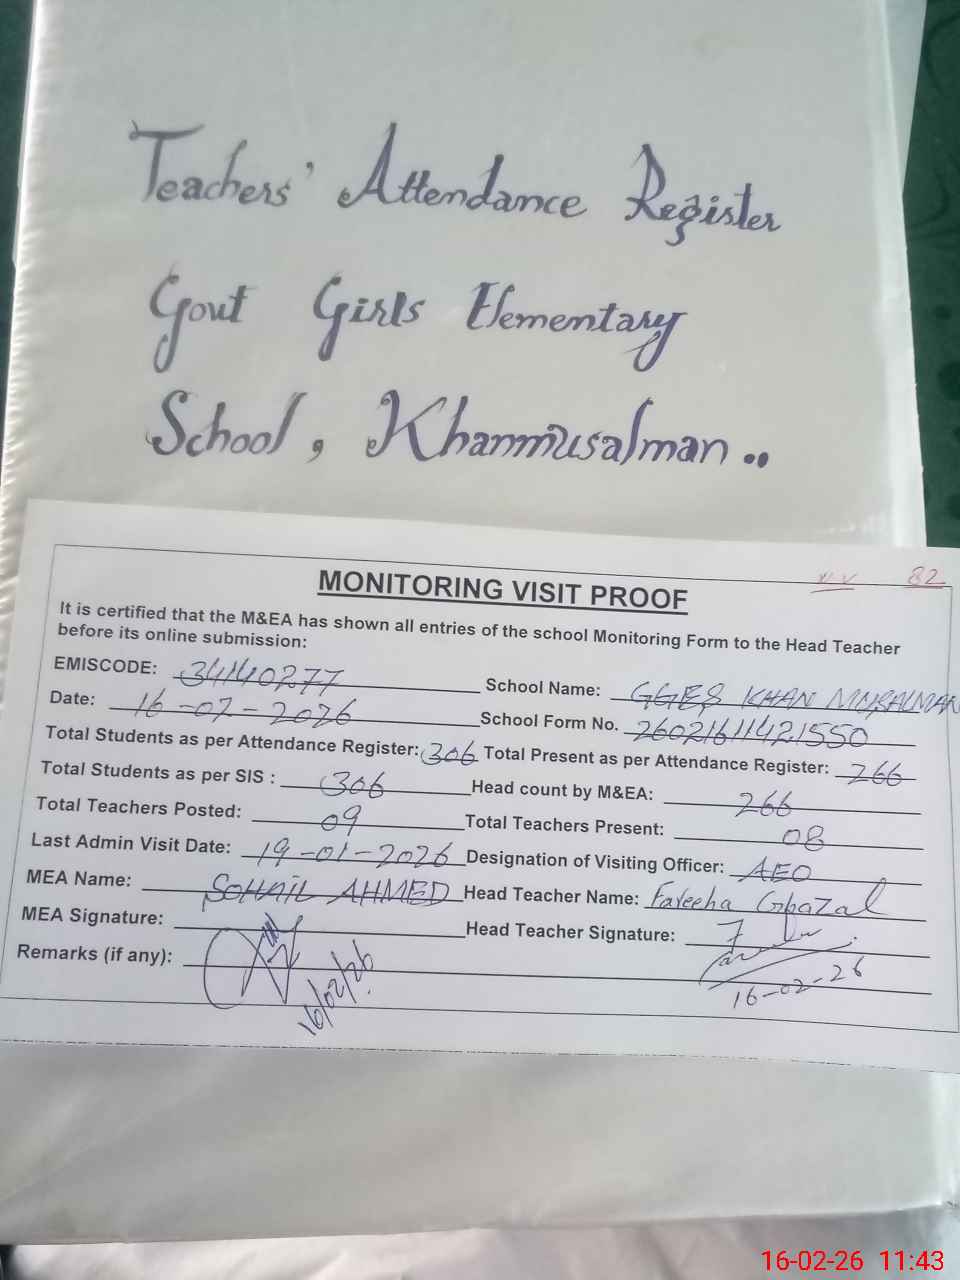 Teachers' Attendance Register
Govt Girls Elementary
School, Khanmusalman..
82
MONITORING VISIT PROOF
It is certified that the M&EA has shown all entries of the school Monitoring Form to the Head Teacher
before its online submission:
EMISCODE: 34140277 School Name: GGES KHAN MUSALMAN
Date: 16-02-2026 School Form No. 26021611421550
Total Students as per Attendance Register: 306 Total Present as per Attendance Register: 266
Total Students as per SIS : 306 Head count by M&EA: 266
Total Teachers Posted: 09 Total Teachers Present: 08
Last Admin Visit Date: 19-01-2026 Designation of Visiting Officer: AEO
MEA Name: SOHAIL AHMED Head Teacher Name: Fareeha Ghazal
MEA Signature: Head Teacher Signature:
Remarks (if any):
16/02/26
16-02-26
16-02-26 11:43